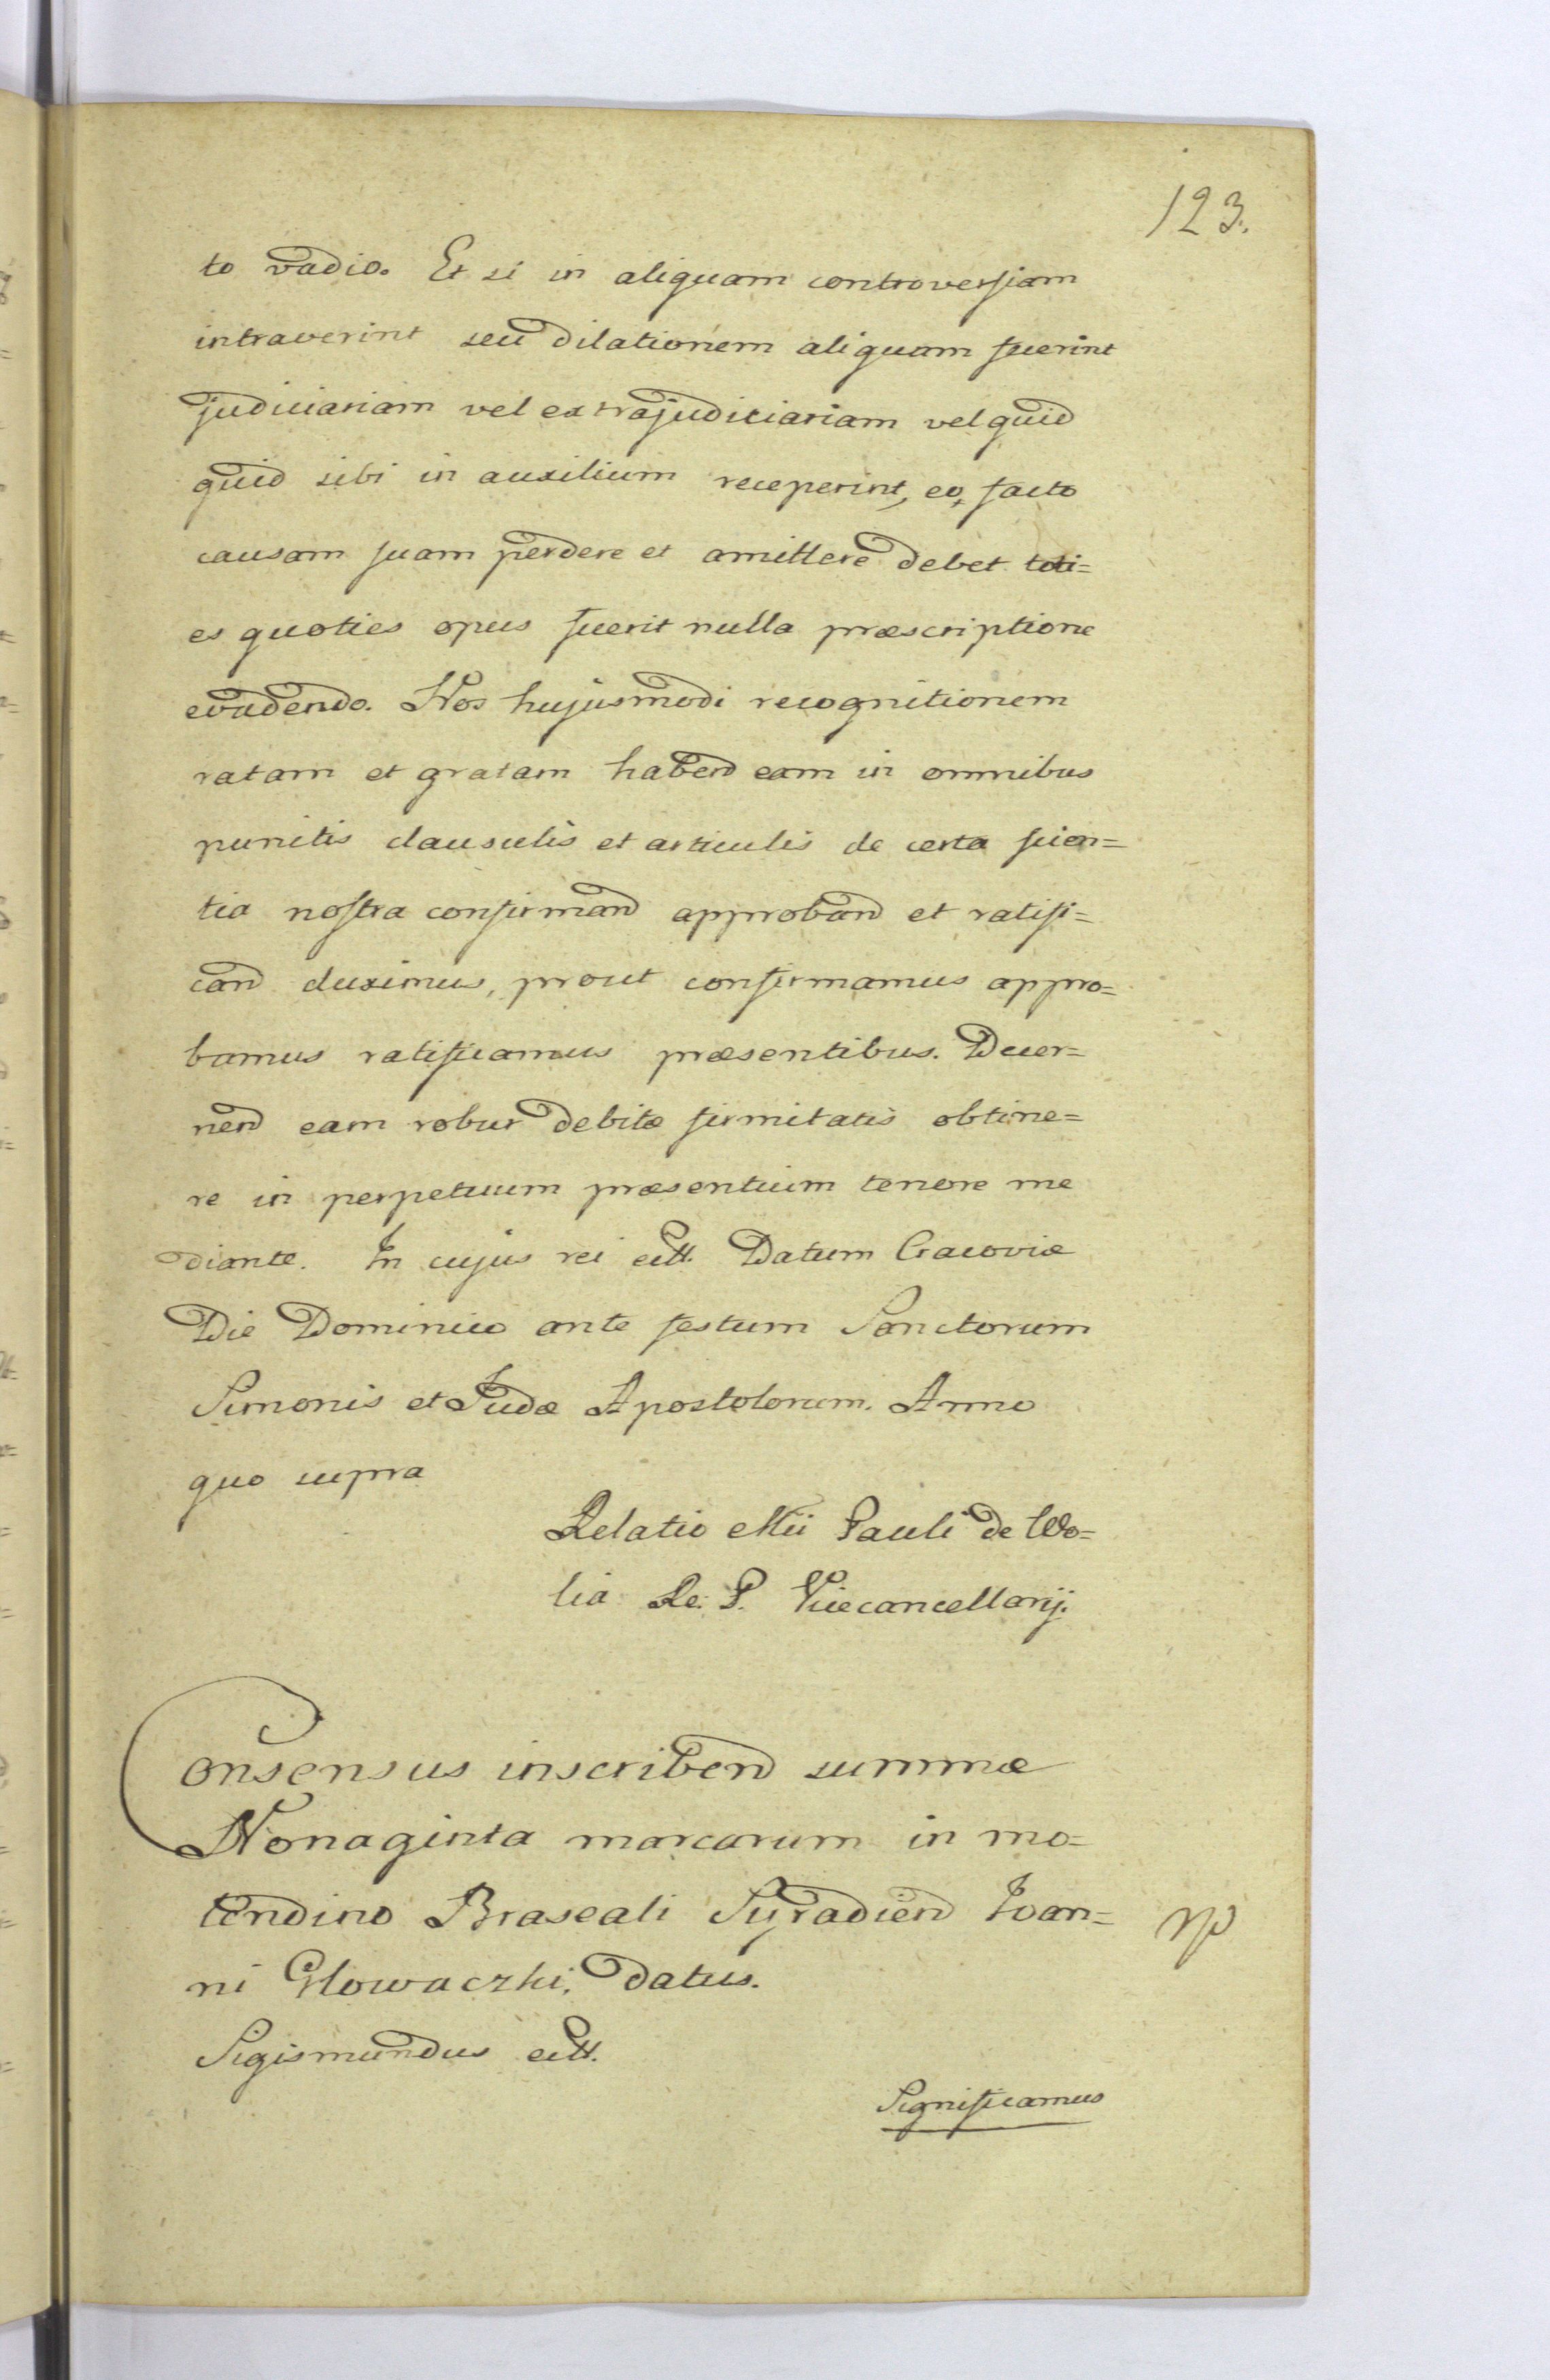 123.
to vadio. Et si in aliquam controversiam
intraverint seu dilationem aliquam fuerint
judiciariam vel extrajudiciariam vel quid
quid sibi in auxilium receperint, eo, facto
causam suam perdere et amittere debet toti=
es quoties opus fuerit nulla præscriptione
evadendo. Nos hujusmodi recognitionem
ratam et gratam habend eam in omnibus
punctis clausulis et articulis de certa scien=
tia nostra confirmand approband et ratifi=
cand duximus, prout confirmamus appro=
bamus ratificamus præsentibus. Decer=
nend eam robur debitæ firmitatis obtine=
re in perpetuum præsentium tenore me
diante. In cujus rei ectt. Datum Cracoviæ
Die Dominico ante festum Sanctorum
Simonis et Judæ Apostolorum. Anno
quo supra
Relatio Mii Pauli de Wo=
lia Re. P. Vicecancellarij.
Consensus inscribend summæ
Nonaginta marcarum in mo=
lendino Braseali Syradiend Joan=
ni Glowaczki, datus.
Sigismundus ectt.
Significamus